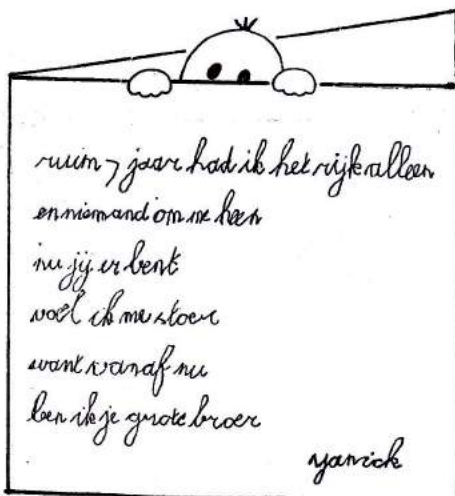 ruim 7 jaar had ik het rijk alleen
en niemand om me heen
nu jij er bent
voel ik me stoer
want vanaf nu
ben ik je grote broer
yanick